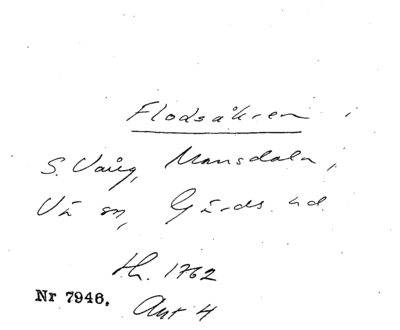 Flodsåkren i
S. Vång, Mansdala,
Vä sn, Gärds hd
Lh. 1762
Nr 7946. Akt 4